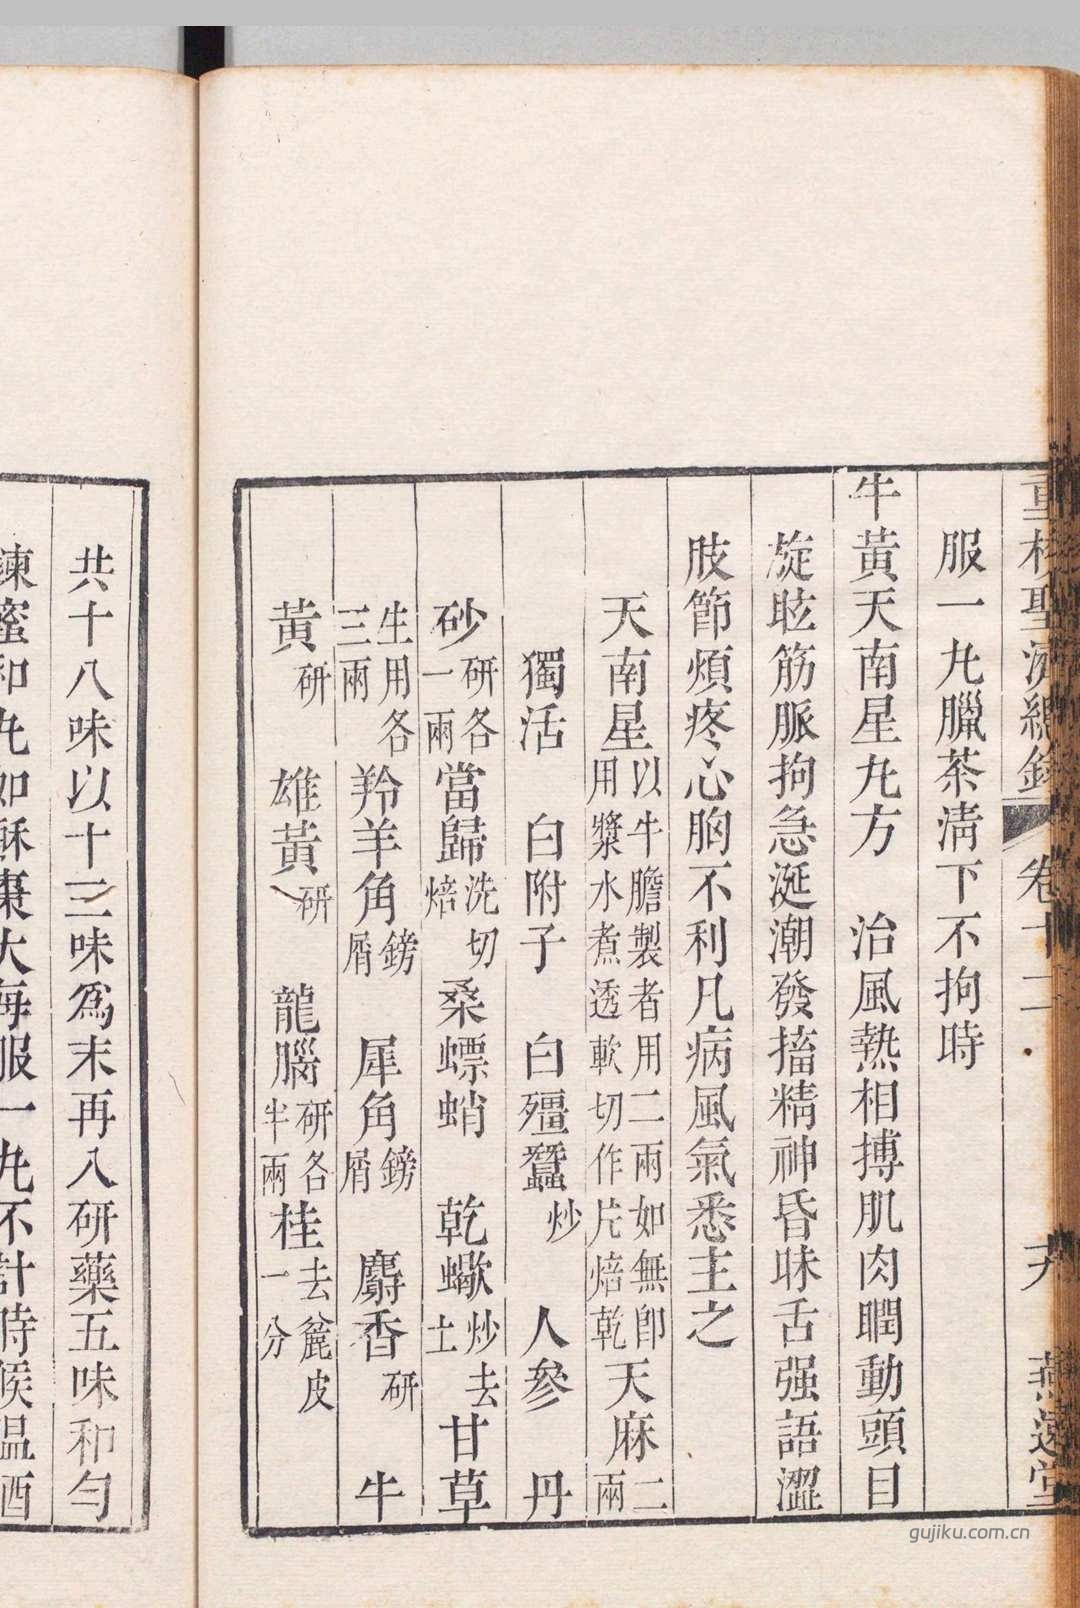 重校聖濟總錄 卷十二 燕遠堂
服一丸臘茶淸下不拘時
牛黃天南星丸方 治風熱相搏肌肉瞤動頭目
旋眩筋脈拘急涎潮發搐精神昏昧舌强語澀
肢節煩疼心胸不利凡病風氣悉主之
天南星以牛膽製者用二兩如無卽用漿水煮透軟切作片焙乾天麻二兩
獨活 白附子 白殭蠶炒 人參 丹
砂研各一兩當歸洗切焙桑螵蛸 乾蠍炒去土甘草
生用各三兩羚羊角鎊屑 犀角鎊屑 麝香研 牛
黃研 雄黃研 龍腦研各半兩桂去麄皮一分
共十八味以十三味爲末再入研藥五味和勻
鍊蜜和丸如酥棗大每服一丸不計時候温酒
gujiku.com.cn